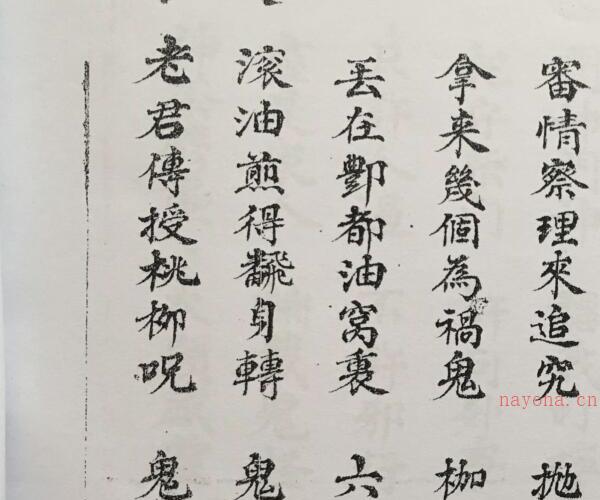 審情察理來追究 拋
拿来幾個為禍鬼 枷
丟在酆都油窩裏 六
滚油煎得飜身轉 鬼
老君傳授桃柳呪 鬼
nayona.cn